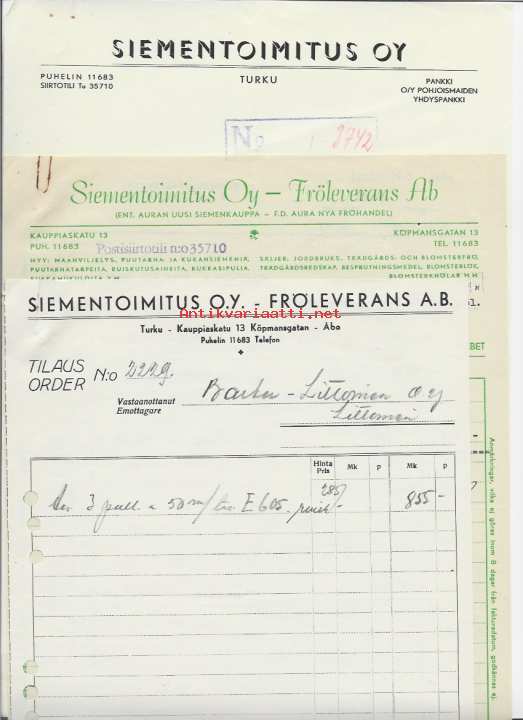 SIEMENTOIMITUS OY
PUHELIN 11683
SIIRTOTILI Tu 35710
TURKU
PANKKI
O/Y POHJOISMAIDEN
YHDYSPANKKI
No 3742
Siementoimitus Oy — Fröleverans Ab
(ENT. AURAN UUSI SIEMENKAUPPA – F.D. AURA NYA FRÖHANDEL)
KAUPPIASKATU 13
PUH. 11683
Postisiirtotili n:o 35710
KÖPMANSGATAN 13
TEL 11683
MYY: MAANVILJELYS, PUUTARHA- JA KUKANSIEMENIÄ,
PUUTARHATARPEITA, RUISKUTUSAINEITA, KUKKASIPULIA,
SÄLJER: JORDBRUKS, TRÄDGÅRDS- OCH BLOMSTERFRÖ,
TRÄDGÅRDSREDSKAP, BESPRUTNINGSMEDEL, BLOMSTERLÖK,
Antikvariaatti.net
SIEMENTOIMITUS O.Y. - FRÖLEVERANS A.B.
Turku - Kauppiaskatu 13 Köpmansgatan - Åbo
Puhelin 11683 Telefon
BET
TILAUS
ORDER
N:o 2229.
Vastaanottanut
Emottagare
Barker - Littoinen O.y
Littoinen
Hinta
Pris
Mk
P
Mk
P
3 pull. a 50 E 605. 285/- 855 -
Anmärkningar, vilka ej göras inom 8 dagar från fakturadatum, godkännes ej.